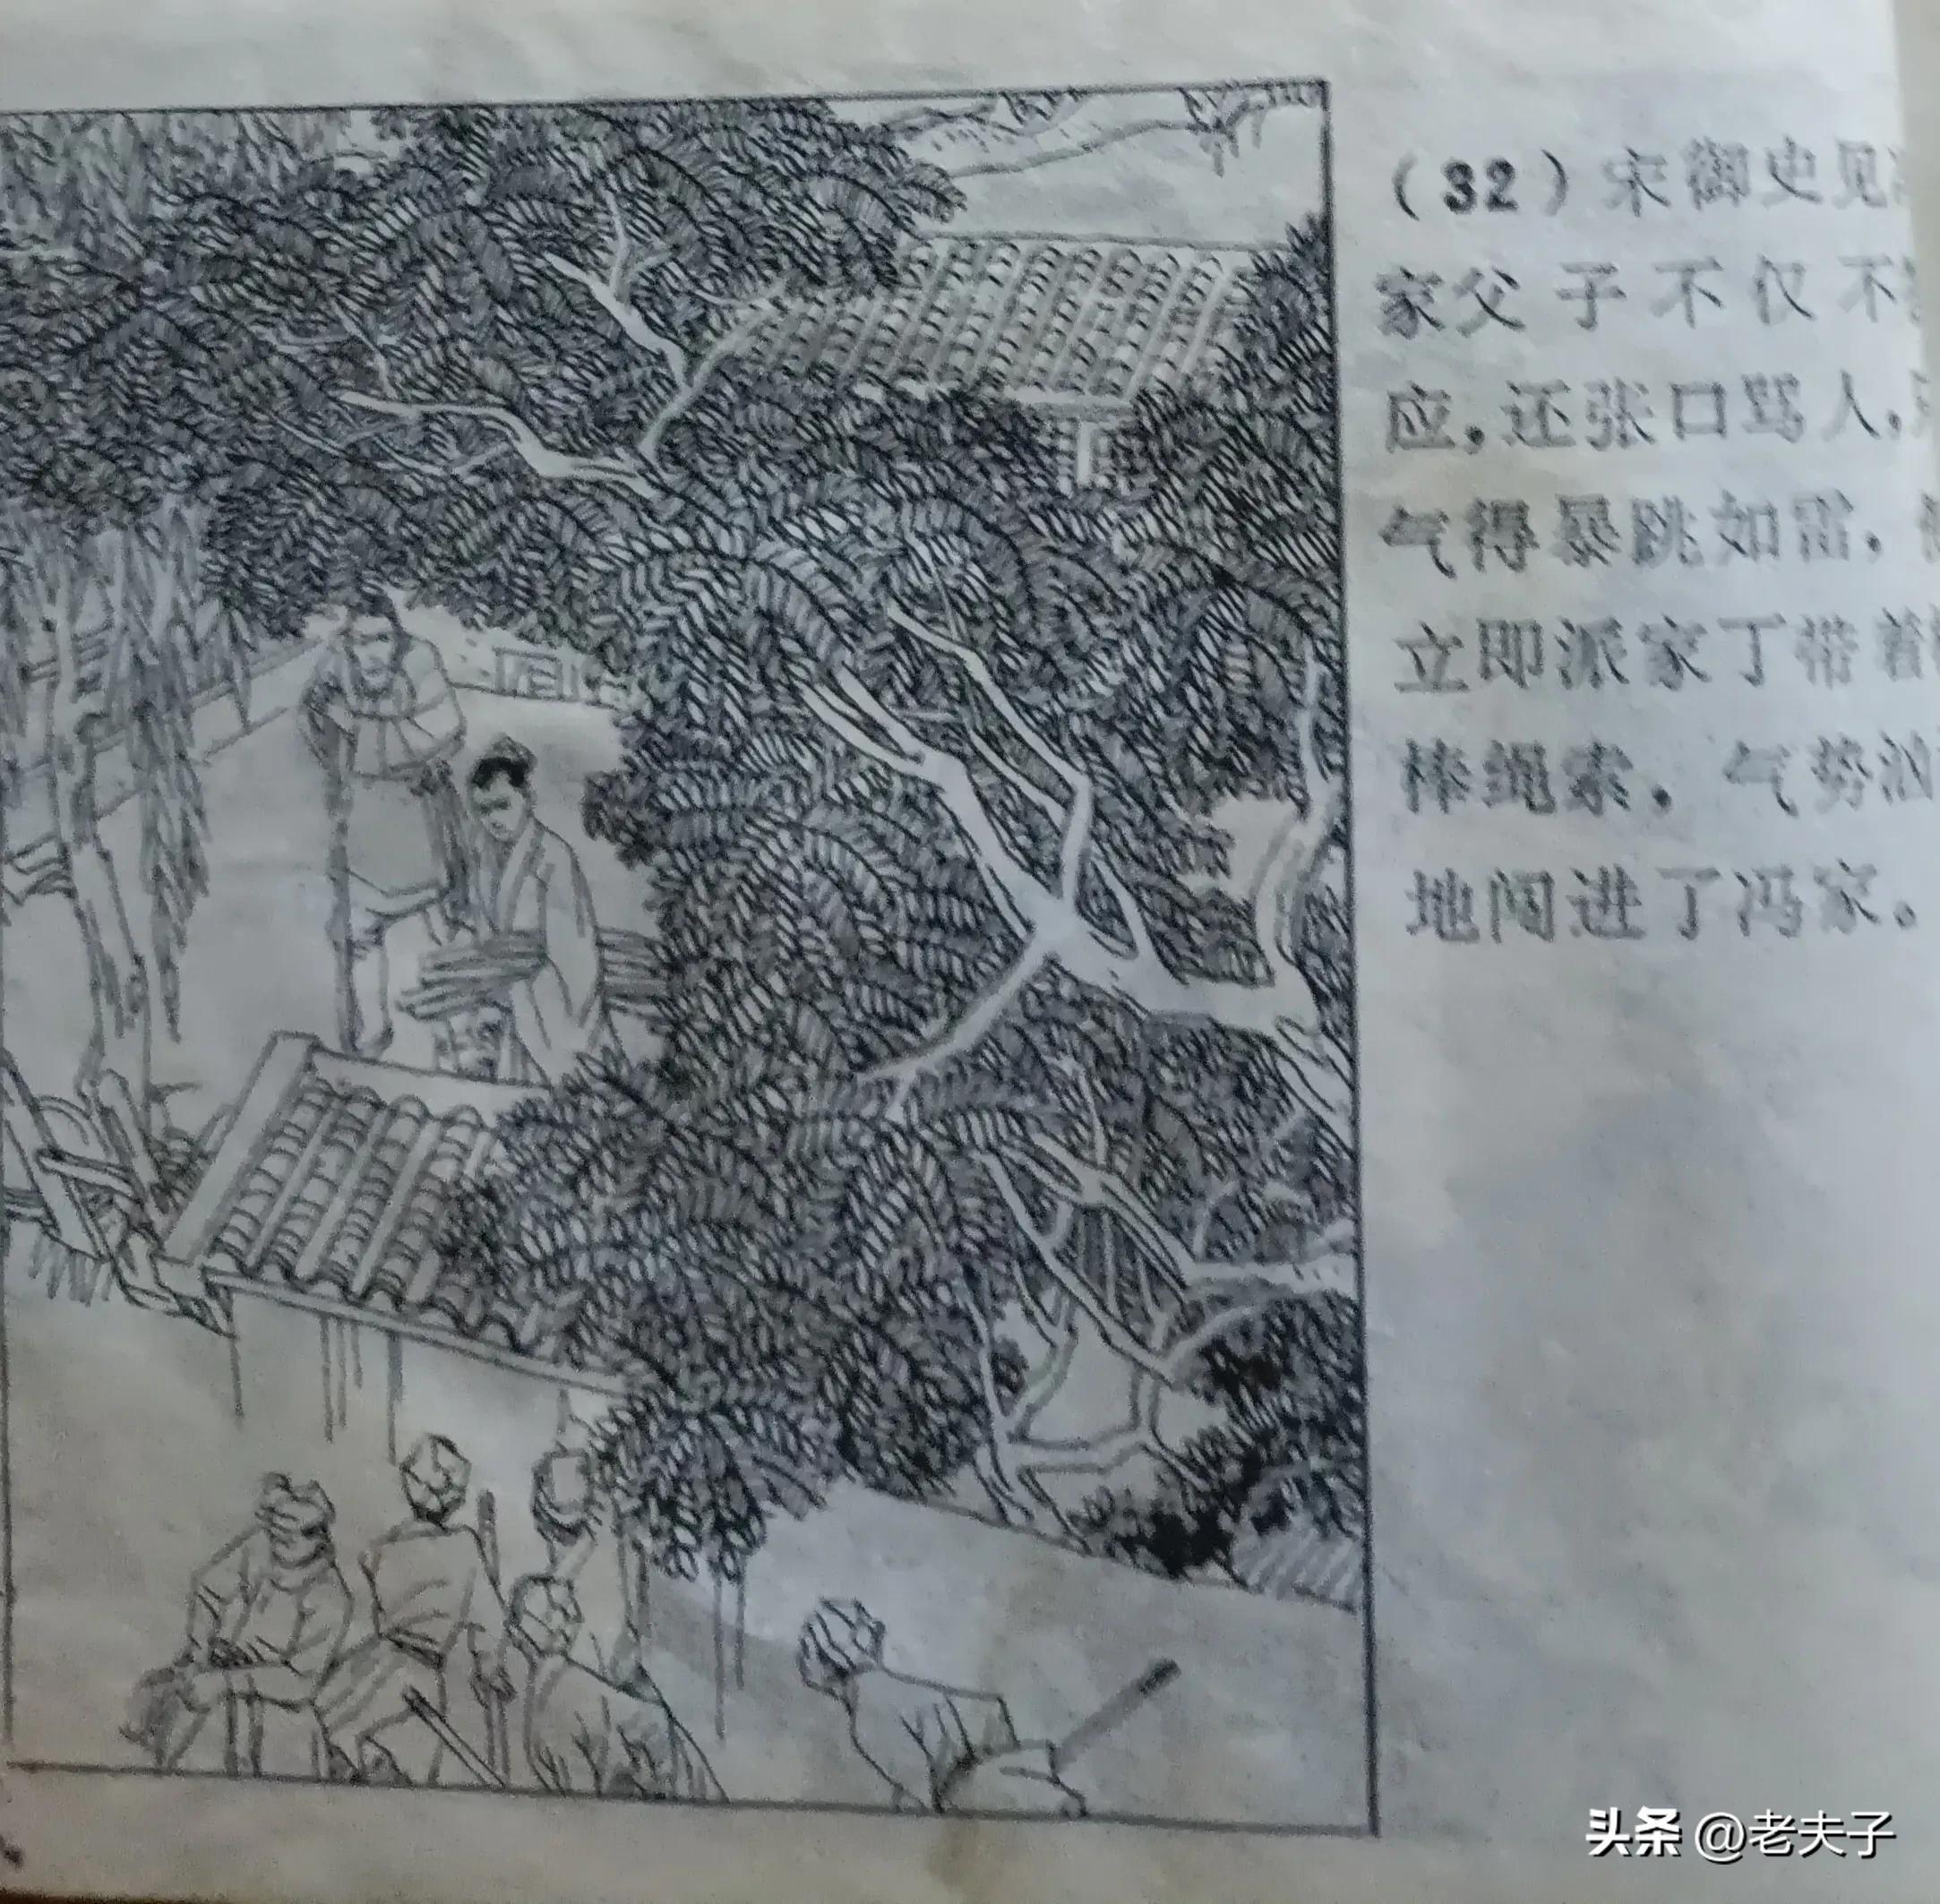 （32）宋御史见
家父子不仅不
应，还张口骂人，
气得暴跳如雷，
立即派家丁带着
棒绳索，气势汹
地闯进了冯家。
头条 @老夫子